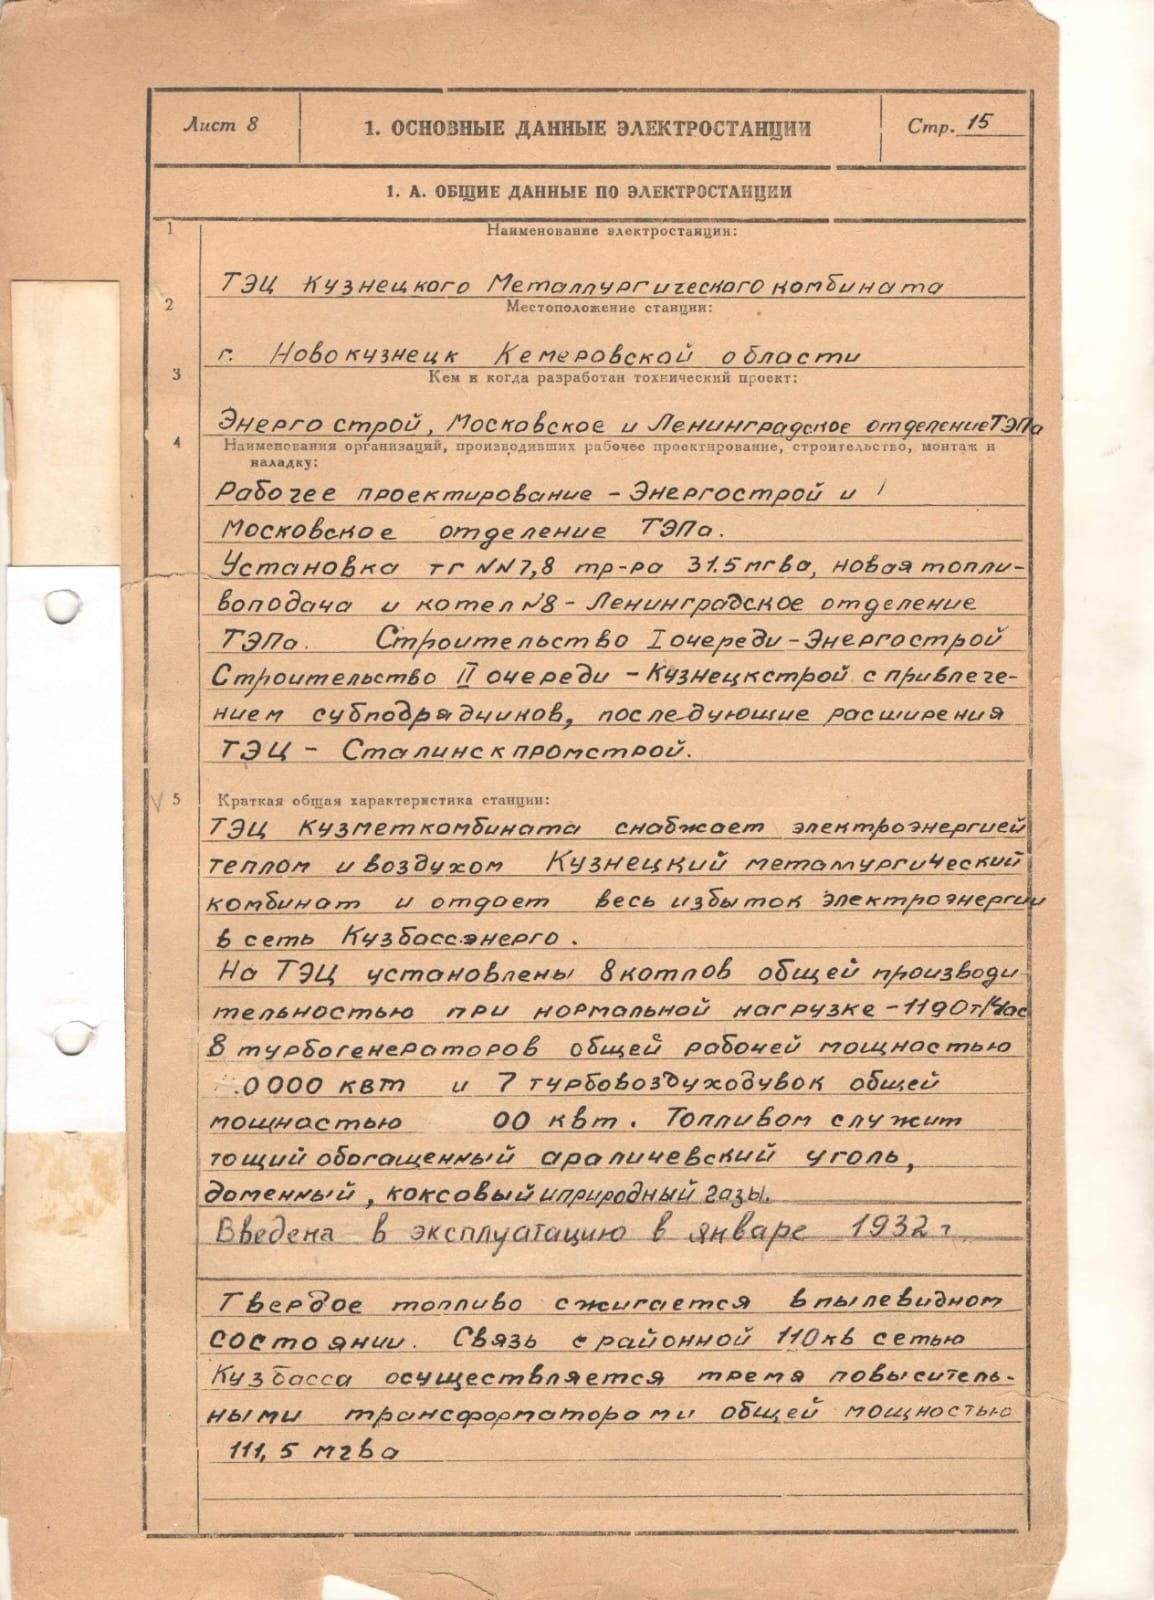 Лист 8
1. ОСНОВНЫЕ ДАННЫЕ ЭЛЕКТРОСТАНЦИИ
Стр. 15
1. А. ОБЩИЕ ДАННЫЕ ПО ЭЛЕКТРОСТАНЦИИ
1 Наименование электростанции:
ТЭЦ Кузнецкого Металлургического комбината
2 Местоположение станции:
г. Новокузнецк Кемеровской области
3 Кем и когда разработан тохнический проект:
Энергострой, Московское и Ленинградское отделение ТЭПа
4 Наименования организаций, производивших рабочее проектирование, строительство, монтаж и
наладку:
Рабочее проектирование - Энергострой и
Московское отделение ТЭПа.
Установка тг NN7,8 тр-ра 31.5 мгва, новая топли-
воподача и котел N8 - Ленинградское отделение
ТЭПа. Строительство I очереди - Энергострой
Строительство II очереди - Кузнецкстрой с привлече-
нием субподрядчиков, последующие расширения
ТЭЦ - Сталинскпромстрой.
5 Краткая общая характеристика станции:
ТЭЦ Кузметкомбината снабжает электроэнергией
теплом и воздухом Кузнецкий металлургический
комбинат и отдает весь избыток электроэнергии
в сеть Кузбассэнерго.
На ТЭЦ установлены 8 котлов общей производи
тельностью при нормальной нагрузке - 1190 т/час
8 турбогенераторов общей рабочей мощностью
0000 квт и 7 турбовоздуходувок общей
мощностью 00 квт. Топливом служит
тощий обогащенный араличевский уголь,
доменный, коксовый и природный газы.
Введена в эксплуатацию в январе 1932 г
Твердое топливо сжигается в пылевидном
состоянии. Связь с районной 110 кв сетью
Кузбасса осуществляется тремя повыситель-
ными трансформаторами общей мощностью
111,5 мгва